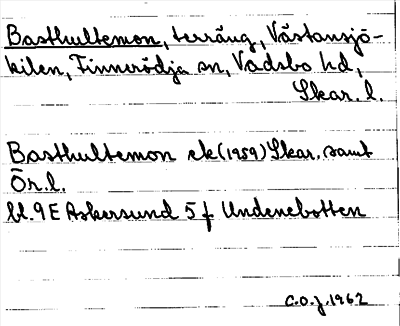 Basthultemon, terräng, Västansjö-
kilen, Finnerödja sn, Vadsbo hd,
Skar. l.
Basthultemon ek (1959) Skar. samt
Ör. l.
bl. 9 E Askersund 5 f Undenebotten
C.O.J. 1962